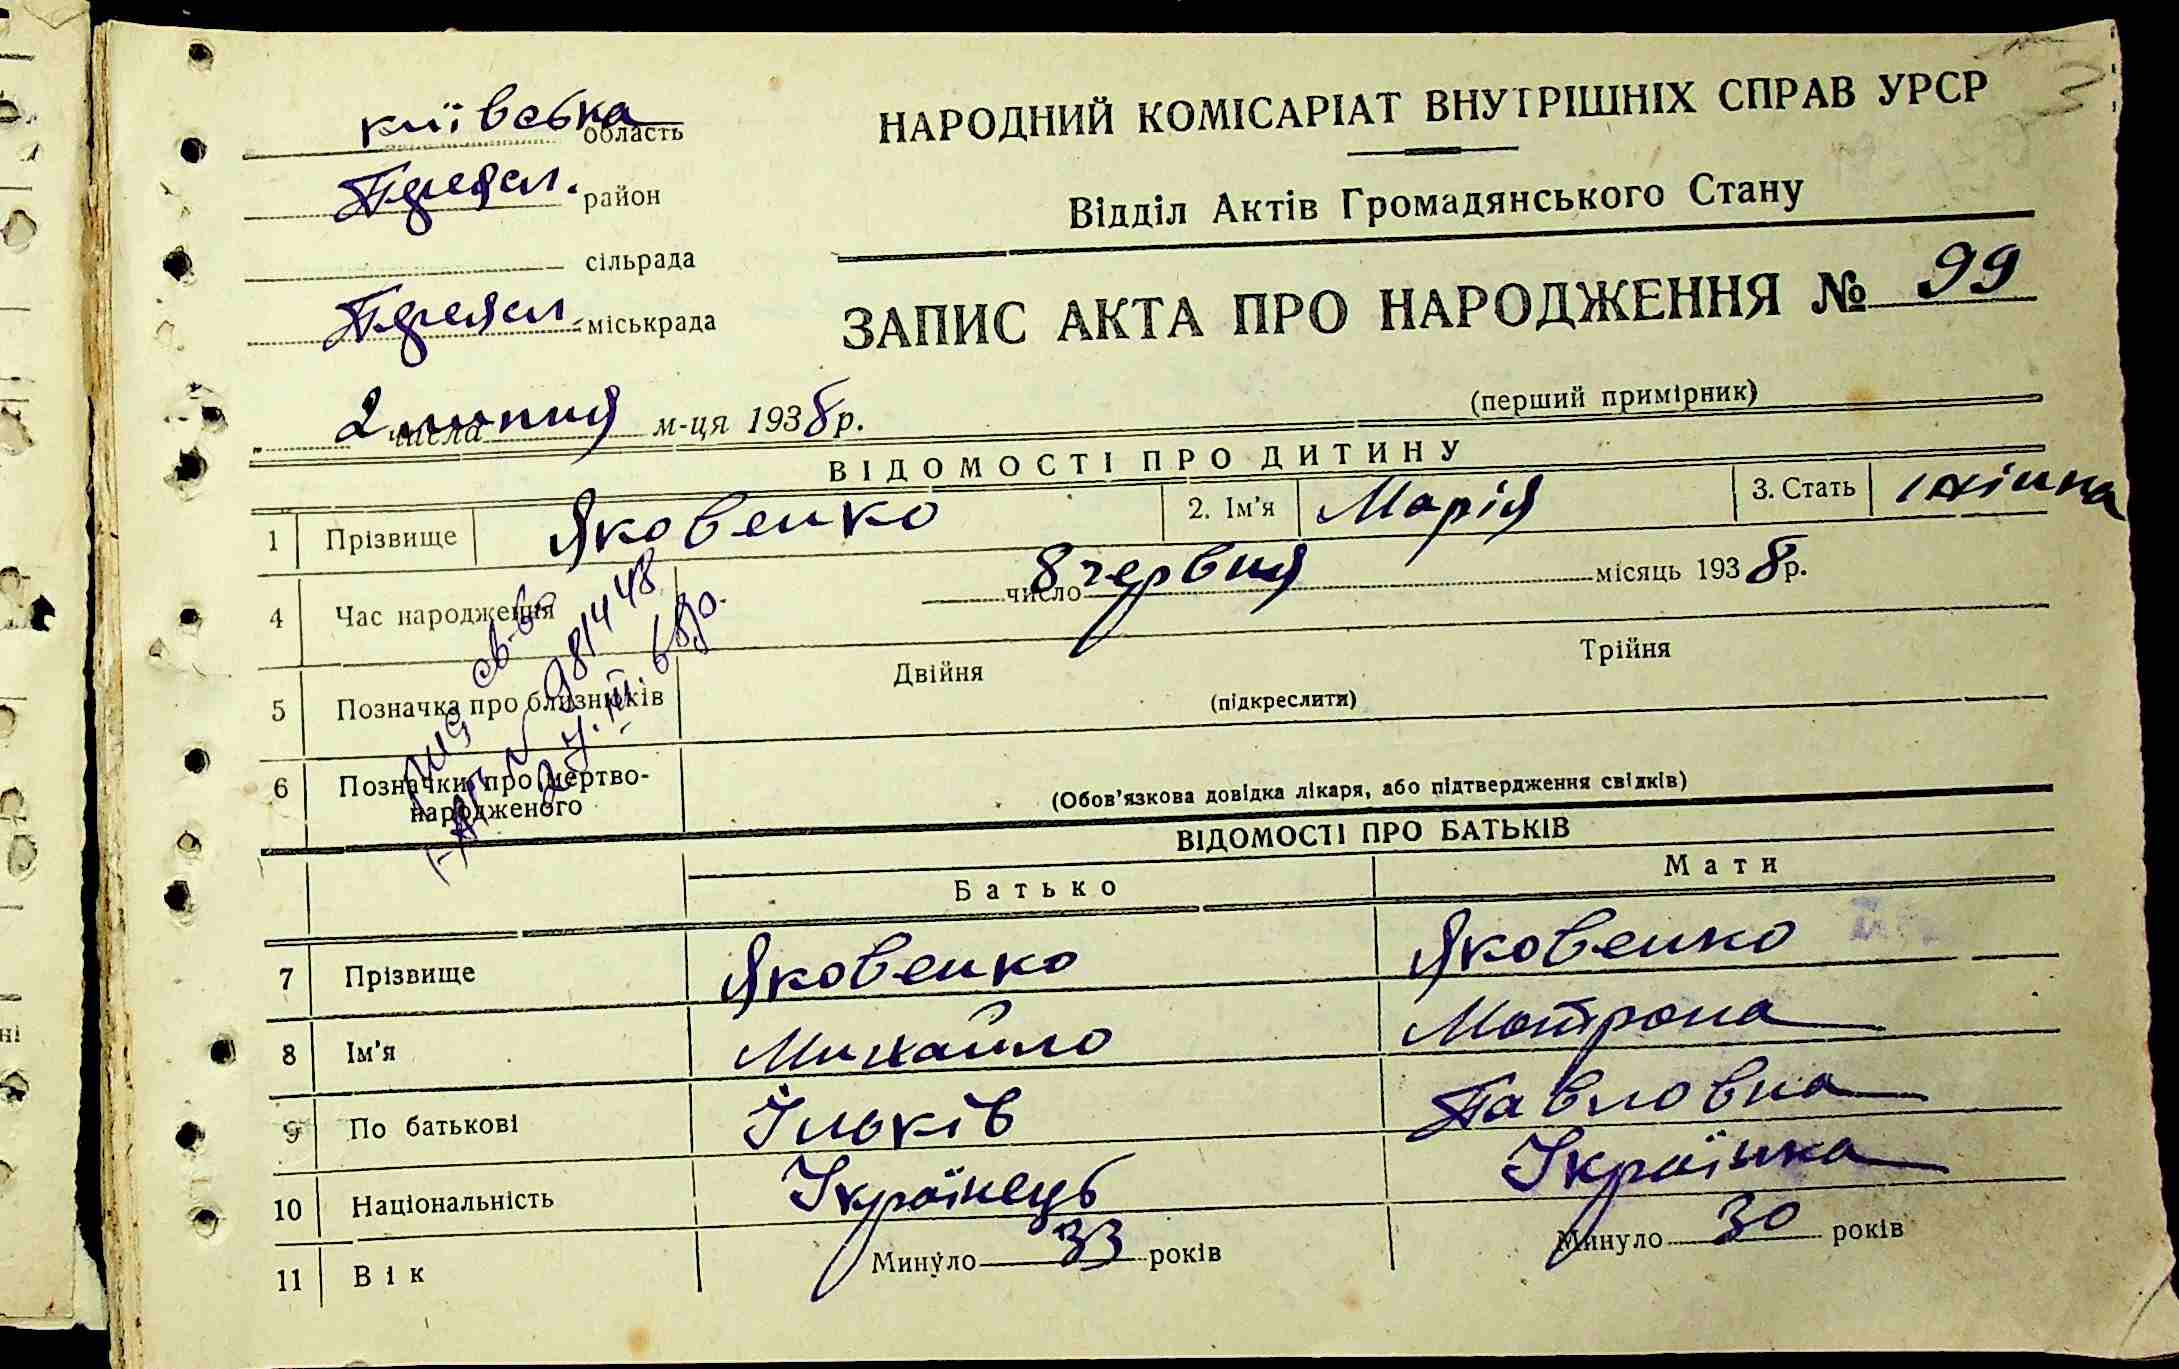 НАРОДНИЙ КОМІСАРІАТ ВНУТРІШНІХ СПРАВ УРСР
Київська область
Відділ Актів Громадянського Стану
Переясл. район
сільрада
Переясл. міськрада
ЗАПИС АКТА ПРО НАРОДЖЕННЯ № 99
(перший примірник)
2 числа липня м-ця 1938 р.
ВІДОМОСТІ ПРО ДИТИНУ
1 Прізвище Яковенко 2. Ім'я Марія 3. Стать жінка
4 Час народження 8 число червня місяць 1938 р.
5 Позначка про близнюків Двійня Трійня
(підкреслити)
6 Позначки про мертво-
народженого (Обов'язкова довідка лікаря, або підтвердження свідків)
св-во
№ 981448
ВІДОМОСТІ ПРО БАТЬКІВ
Батько Мати
7 Прізвище Яковенко Яковенко
8 Ім'я Михайло Мотрона
9 По батькові Ільків Павловна
10 Національність Українець Українка
11 Вік Минуло 33 років Минуло 30 років